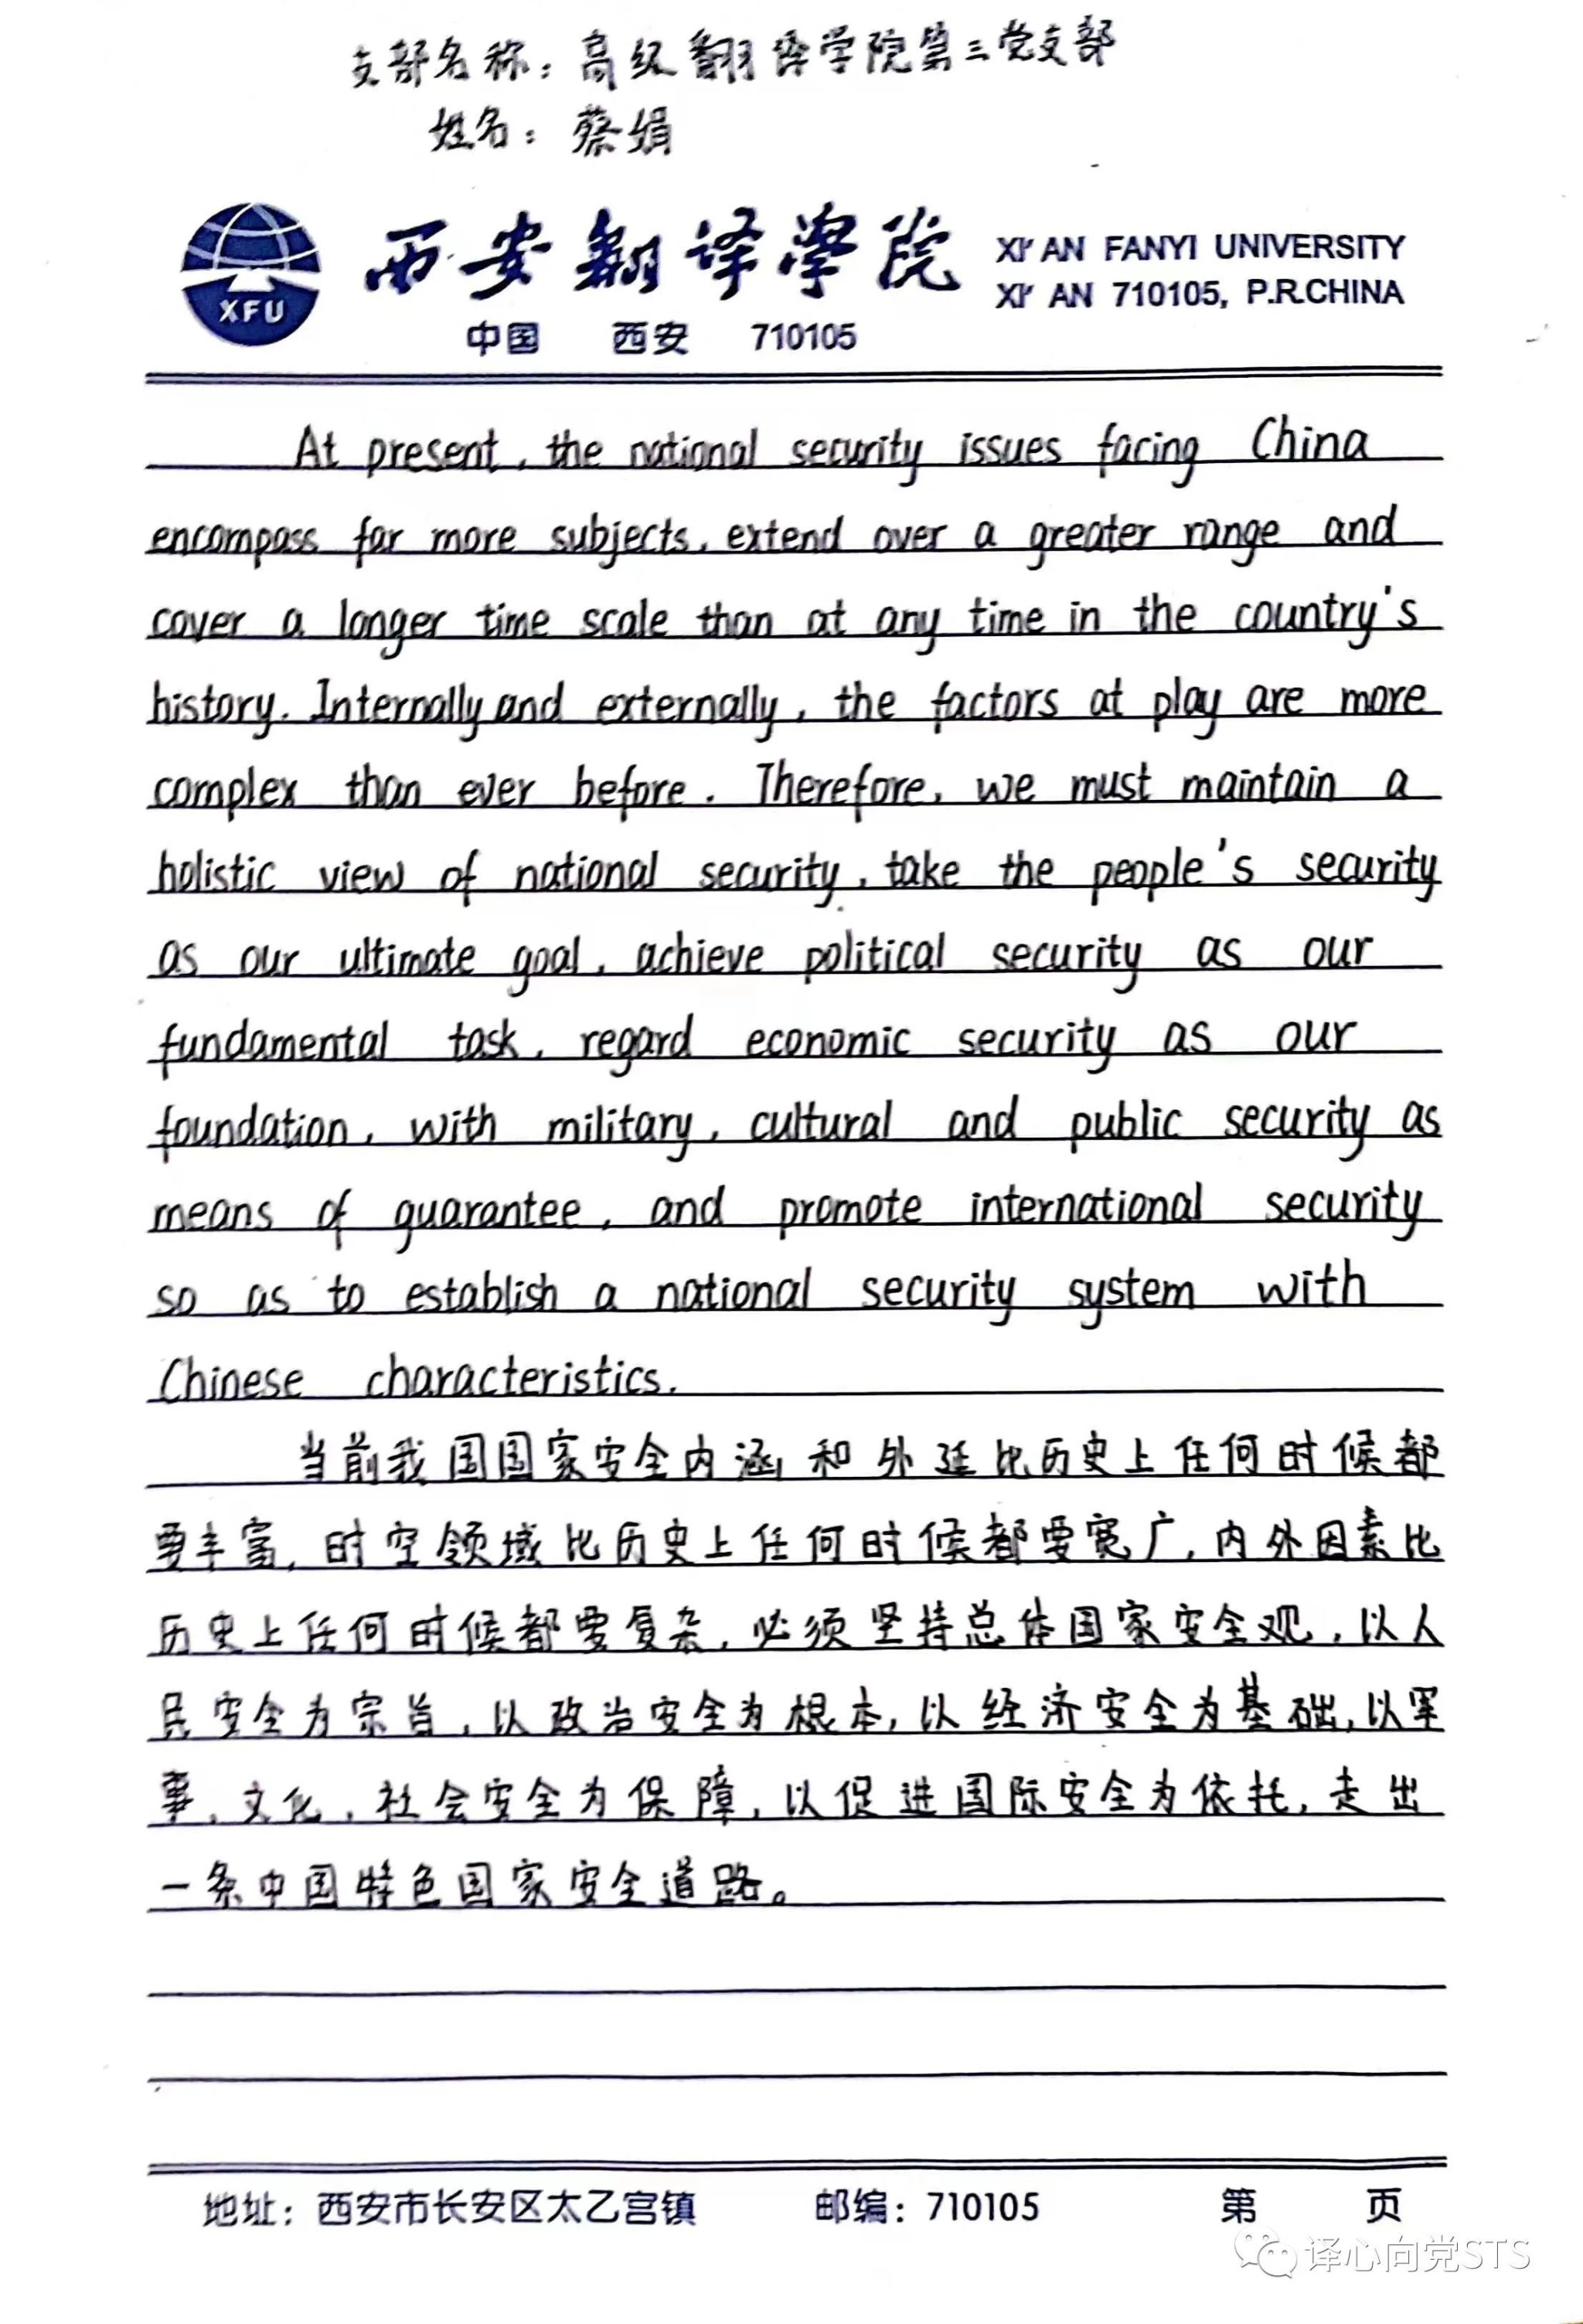 支部名称：高级翻译学院第三党支部
姓名：蔡娟
XFU
西安翻译学院
XI'AN FANYI UNIVERSITY
XI'AN 710105, P.R.CHINA
中国 西安 710105
At present, the national security issues facing China
encompass far more subjects, extend over a greater range and
cover a longer time scale than at any time in the country's
history. Internally and externally, the factors at play are more
complex than ever before. Therefore, we must maintain a
holistic view of national security, take the people's security
as our ultimate goal, achieve political security as our
fundamental task, regard economic security as our
foundation, with military, cultural and public security as
means of guarantee, and promote international security
so as to establish a national security system with
Chinese characteristics.
当前我国国家安全内涵和外延比历史上任何时候都
要丰富，时空领域比历史上任何时候都要宽广，内外因素比
历史上任何时候都要复杂，必须坚持总体国家安全观，以人
民安全为宗旨，以政治安全为根本，以经济安全为基础，以军
事、文化、社会安全为保障，以促进国际安全为依托，走出
一条中国特色国家安全道路。
地址：西安市长安区太乙宫镇 邮编：710105 第 页
译心向党STS